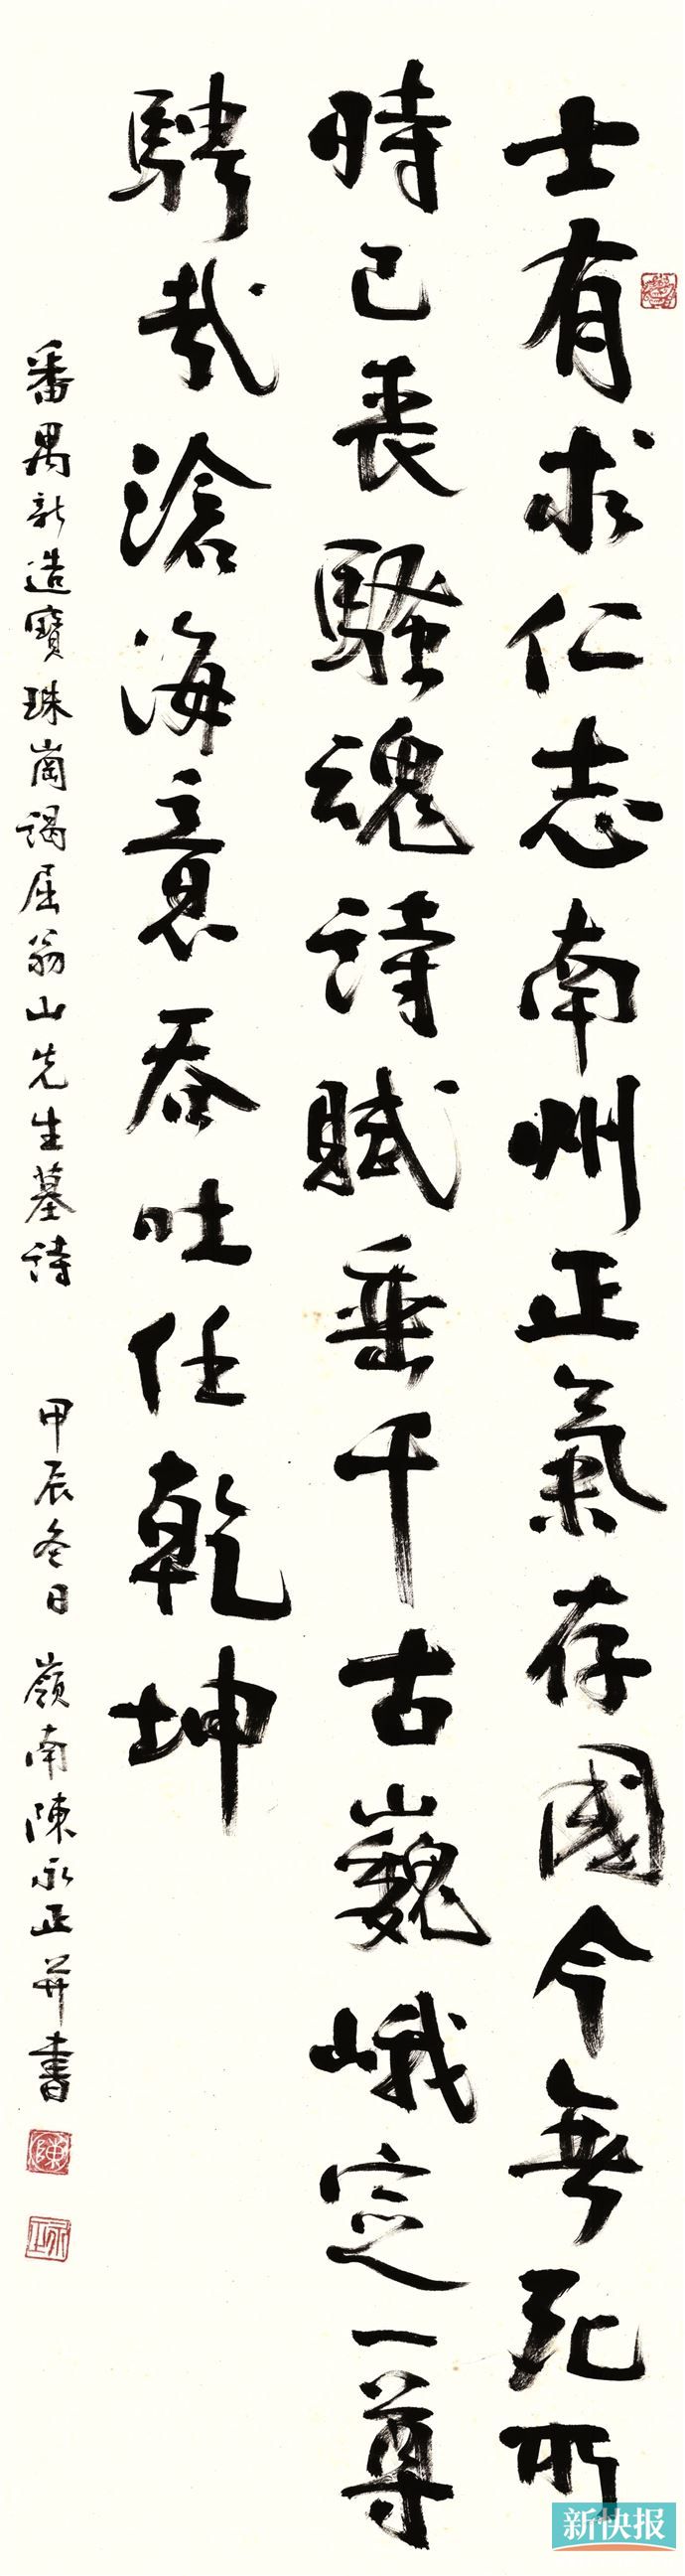 士有求仁志南州正氣存國今無死所
時已喪騷魂詩賦垂千古巍峨定一尊
騁哉滄海意吞吐任乾坤
番禺新造寶珠崗謁屈翁山先生墓詩 甲辰冬日 嶺南陳永正并書
陳
永正
新快报